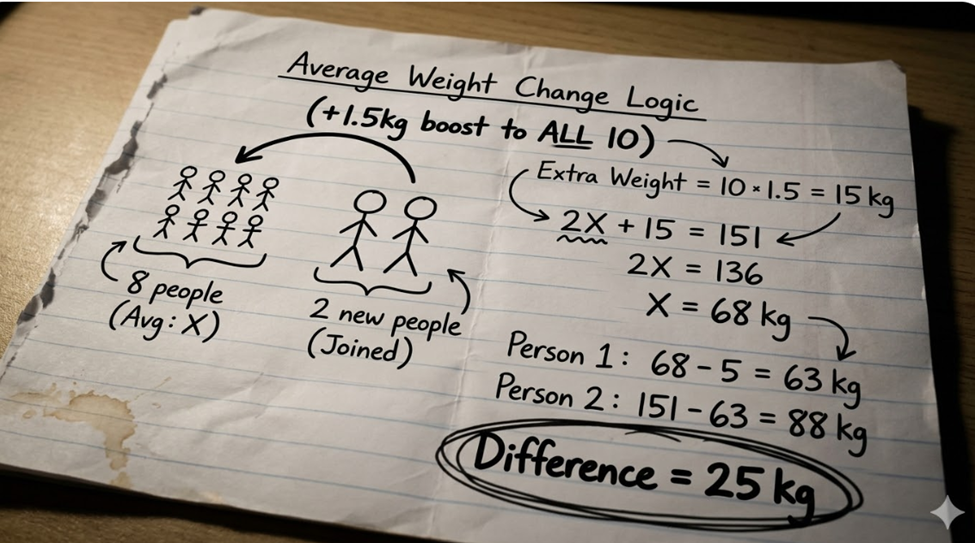 Average Weight Change Logic
(+1.5kg boost to ALL 10)
8 people
(Avg: X)
2 new people
(Joined)
Extra Weight = 10 × 1.5 = 15 kg
2X + 15 = 151
2X = 136
X = 68 kg
Person 1: 68 - 5 = 63 kg
Person 2: 151 - 63 = 88 kg
Difference = 25 kg